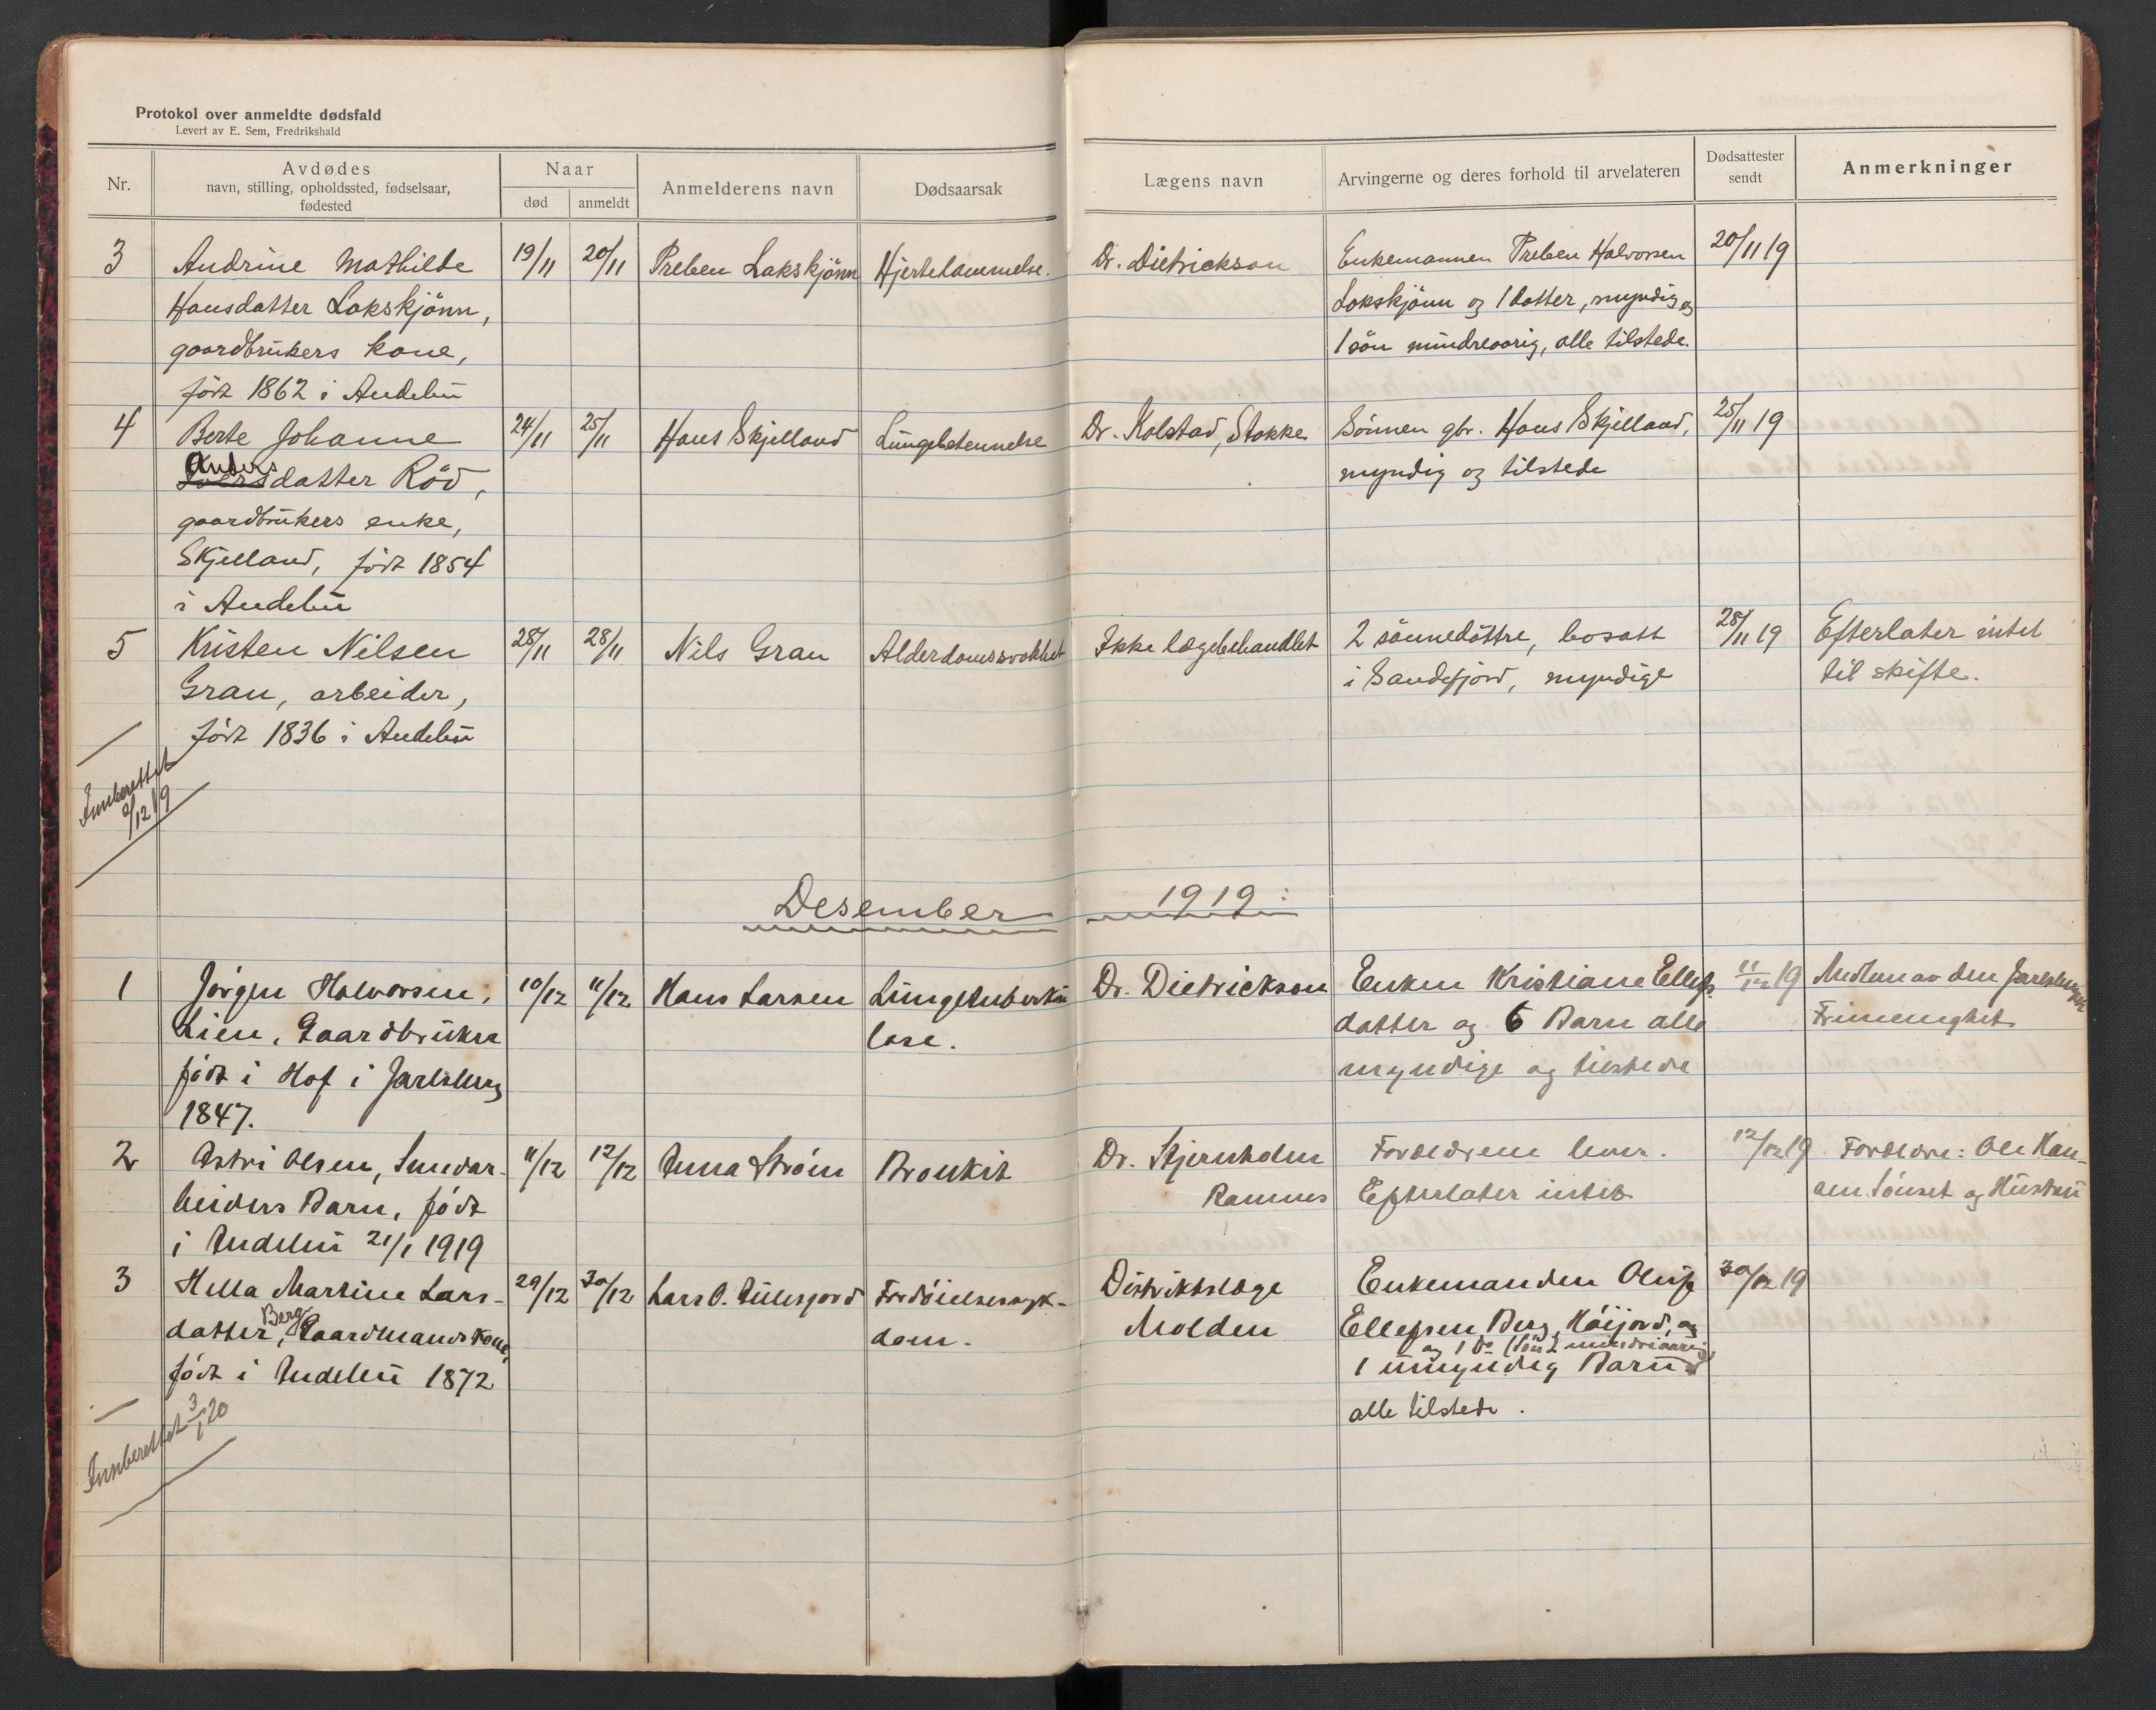 Protokol over anmeldte dødsfald
Levert av E. Sem, Fredrikshald
Nr.
Avdødes
navn, stilling, opholdssted, fødselsaar,
fødested
Naar
død
anmeldt
Anmelderens navn
Dødsaarsak
Lægens navn
Arvingerne og deres forhold til arvelateren
Dødsattester
sendt
Anmerkninger
3
Andrine Mathilde
Hansdatter Lakskjönn,
gaardbrukers kone,
född 1862 i Andebu
19/11
20/11
Preben Lakskjönn
Hjertelammelse.
Dr. Dietrickson
Enkemannen Preben Halvorsen
Lakskjönn og 1 datter, myndig og
1 sön mindreaarig, alle tilstede.
20/11 19
4
Berte Johanne
Anders
Iversdatter Röd,
gaardbrukers enke,
Skjelland, född 1854
i Andebu
24/11
25/11
Hans Skjelland
Lungebetennelse
Dr. Kolstad, Stokke
Sönnen gbr. Hans Skjelland,
myndig og tilstede
25/11 19
5
Kristen Nilsen
Gran, arbeider,
född 1836 i Andebu
28/11
28/11
Nils Gran
Alderdomssvakhet
Ikke lægebehandlet
2 sönnedöttre, bosatt
i Sandefjord, myndige
28/11 19
Efterlater intet
til skifte.
Innberettet
2/12 19
Desember 1919:
1
Jörgen Halvorsen,
Lien, Gaardbruker
född i Hof i Jarlsberg
1847.
10/12
11/12
Hans Larsen
Lungetuberku
lose.
Dr. Dietrickson
Enken Kristiane Ellefs.
datter og 6 Barn alle
myndige og tilstede
11/12 19
Medlem av den Jarlsbergske
Frimenighet
2
Astri Olsen, Smedar-
beiders Barn, född
i Andebu 21/1 1919
11/12
12/12
Anna Ström
Bronkit
Dr. Stjernholm
Ramnes
Foreldrene lever.
Efterlater intet
12/12 19
Foreldre: Ole Han-
sen og Hustru
3
Hella Martine Lars-
Berg
datter, Gaardmands Kone,
född i Andebu 1872
29/12
30/12
Lars O.
Fordöielsessyk-
dom.
Distriktslæge
Molden
Enkemanden Oluf
Ellefsen Berg, Höijord, og
1 umyndig Barn
alle tilstede.
30/12 19
Innberettet 3/1 20